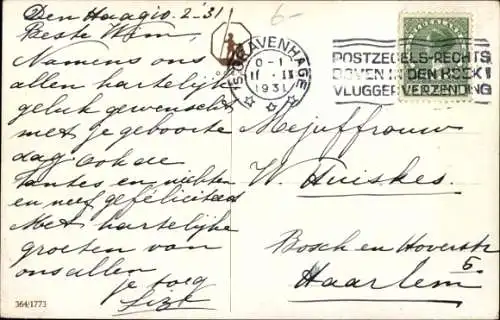 Den Haag 10.2.'31
Beste Wim,
Namens ons
allen hartelijk
geluk gewenscht
met je geboorte
dag Ook de
tantes en nichten
en neef gefeliciteerd
Met hartelijke
groeten van
ons allen
je toeg
364/1773
6-
'S-GRAVENHAGE
0-1
11 II
1931
POSTZEGELS-RECHTS
BOVEN IN DEN HOEK!!
VLUGGER VERZENDING
Mejuffrouw
W. Huiskes.
Bosch en Hovenstr
5.
Haarlem